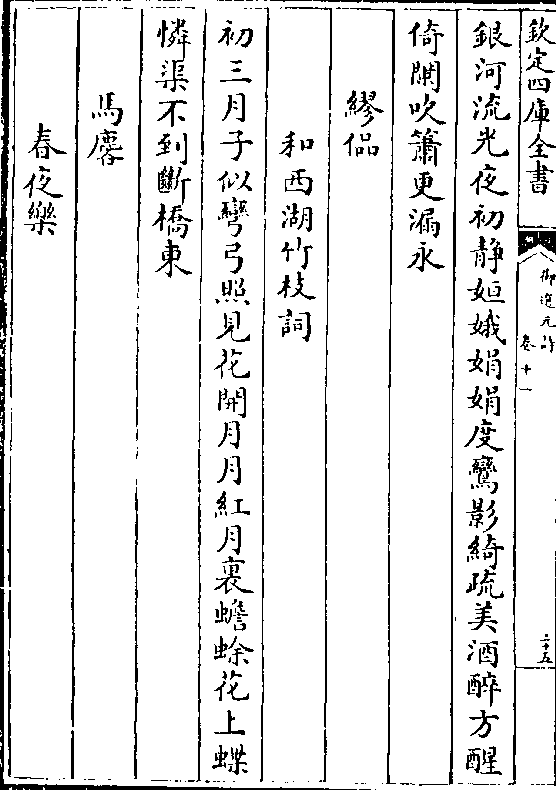 欽定四庫全書
御選元詩
卷十一
二十五
銀河流光夜初静姮娥娟娟度鸞影綺疏美酒醉方醒
倚闌吹簫更漏永
繆侃
和西湖竹枝詞
初三月子似彎弓照見花開月月紅月裏蟾蜍花上蝶
憐渠不到斷橋東
馬麐
春夜樂